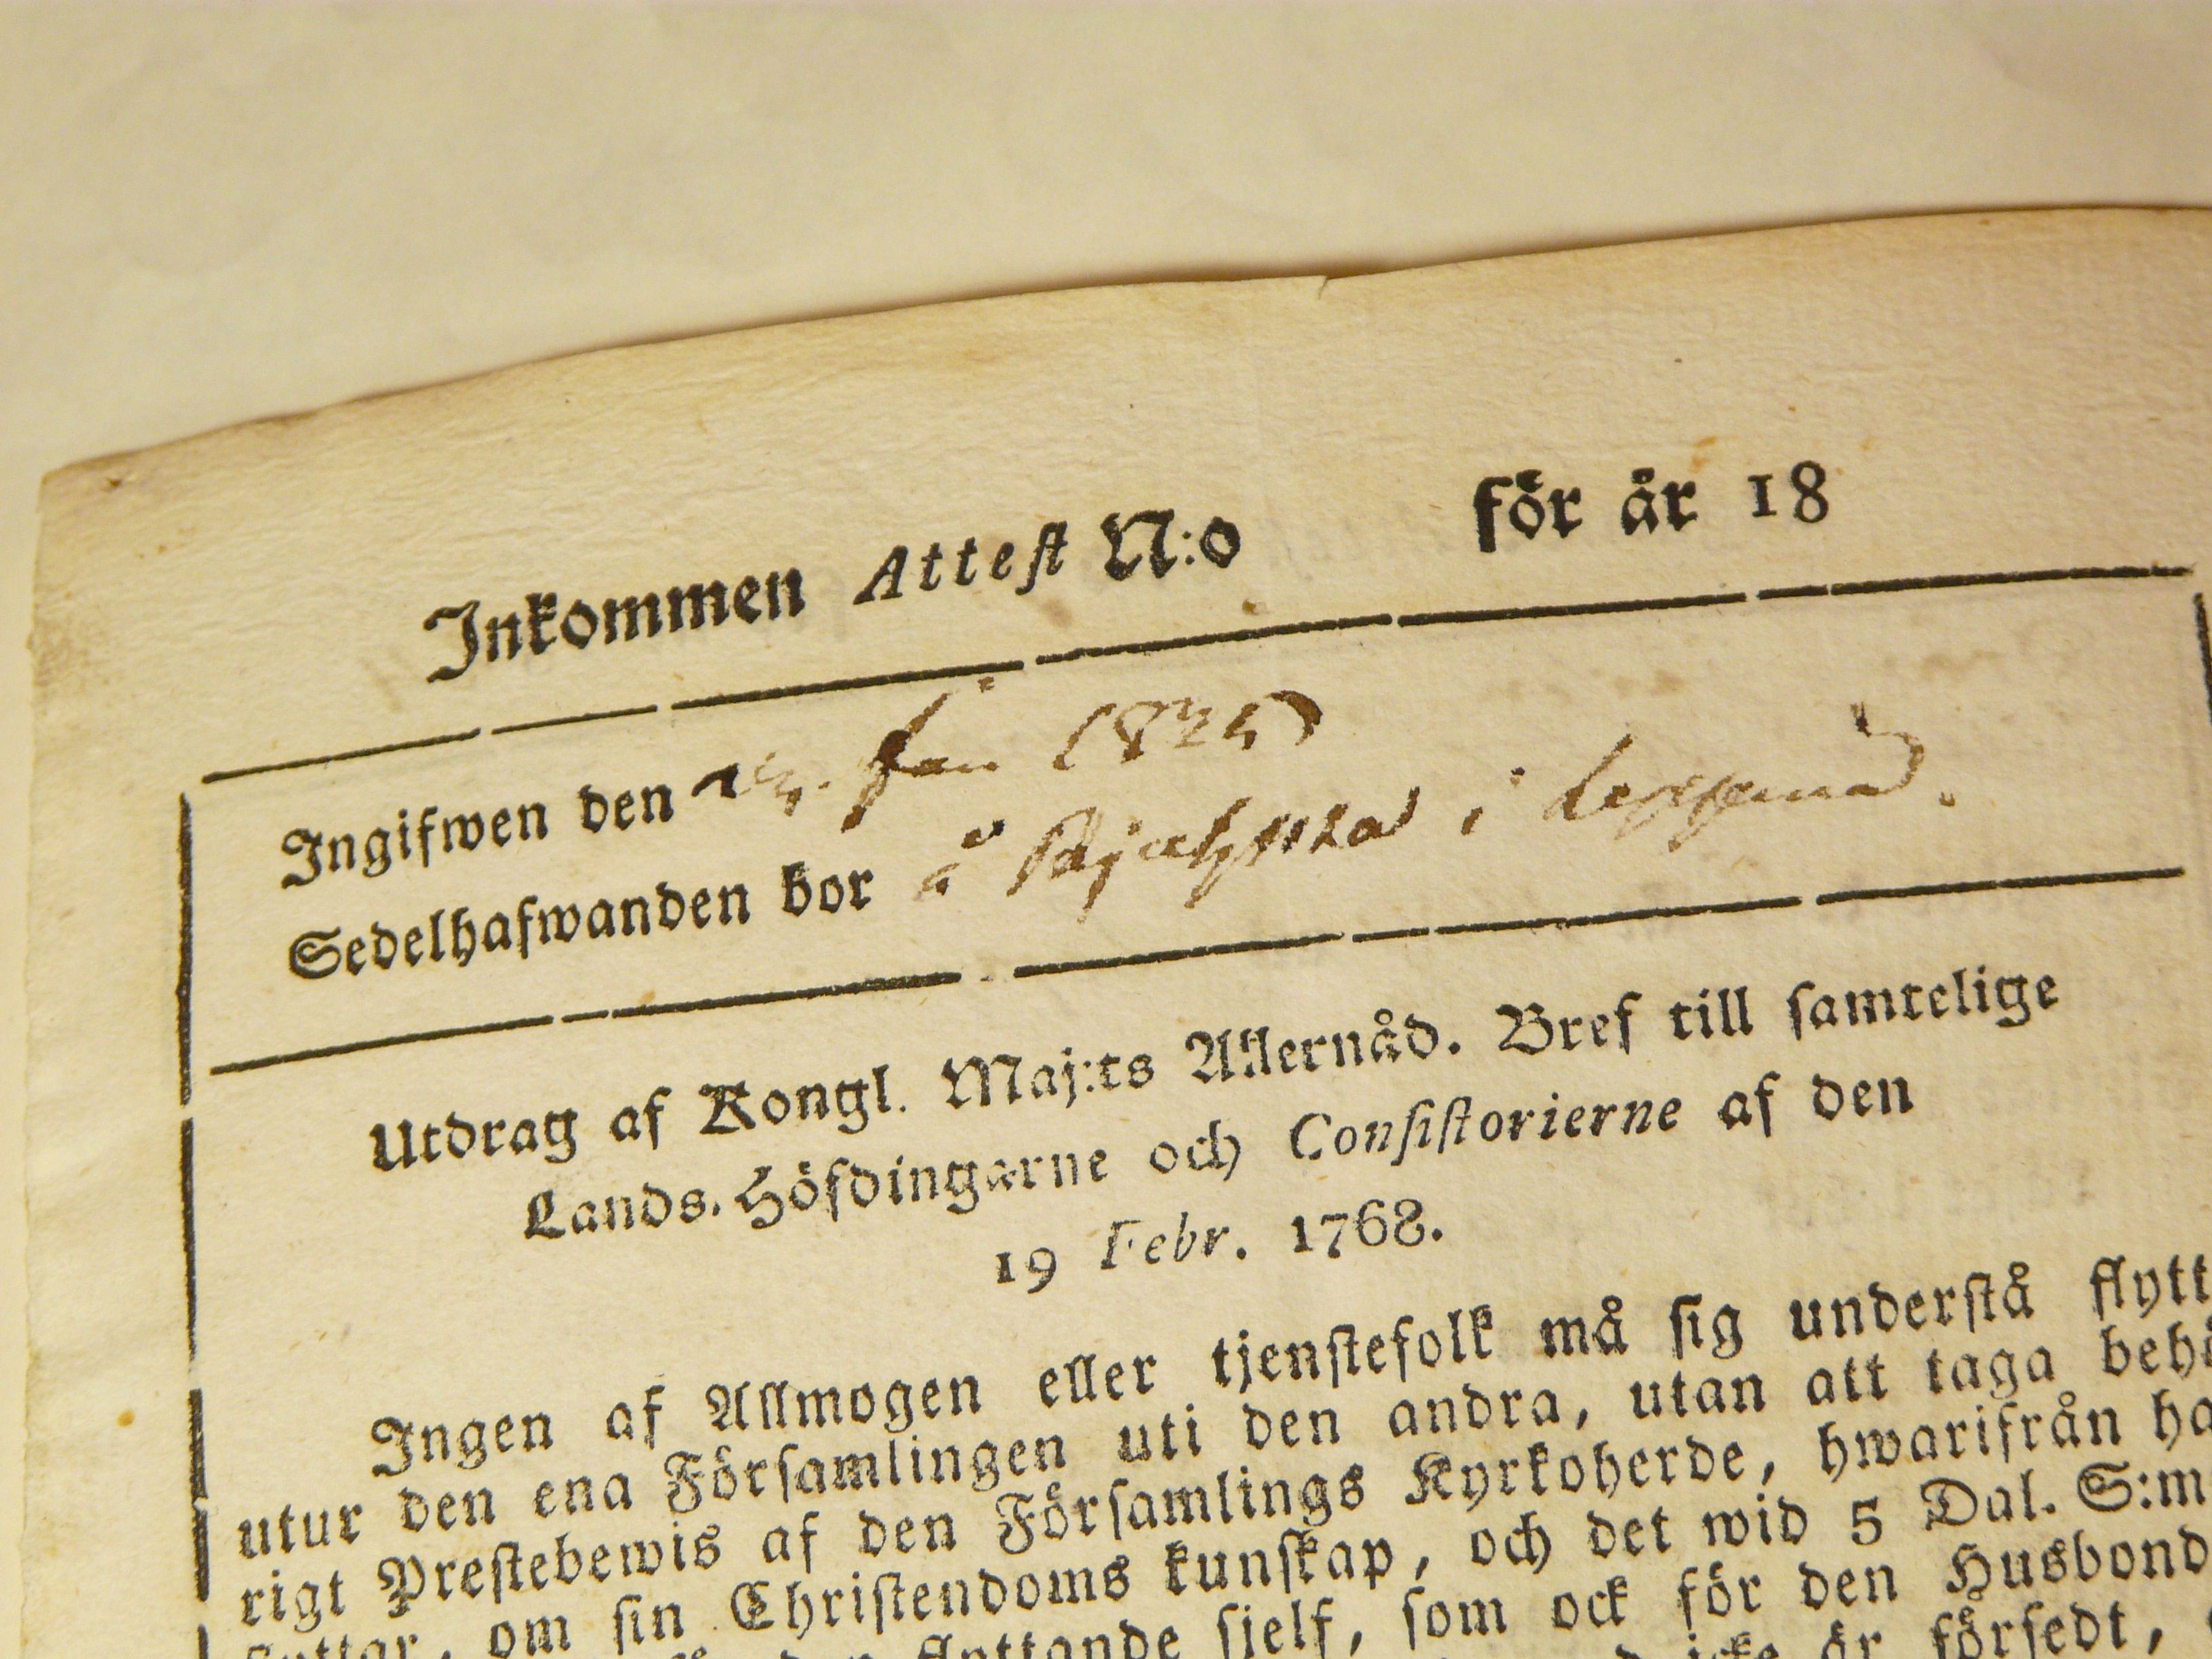 Inkommen Attest N:o för år 18
Ingifwen den Jan 1825
Sedelhafwanden bor å i
Utdrag af Kongl. Maj:ts Allernåd. Bref till samtelige
Lands-Höfdingarne och Consistorierne af den
19 Febr. 1768.
Ingen af Allmogen eller tjenstefolk må sig understå flytt
utur den ena Församlingen uti den andra, utan att taga behö
rigt Prestebewis af den Församlings Kyrkoherde, hwarifrån ha
flyttar, om sin Christendoms kunskap, och det wid 5 Dal. S:m
flyttande sjelf, som ock för den Husbond
icke är försedt,